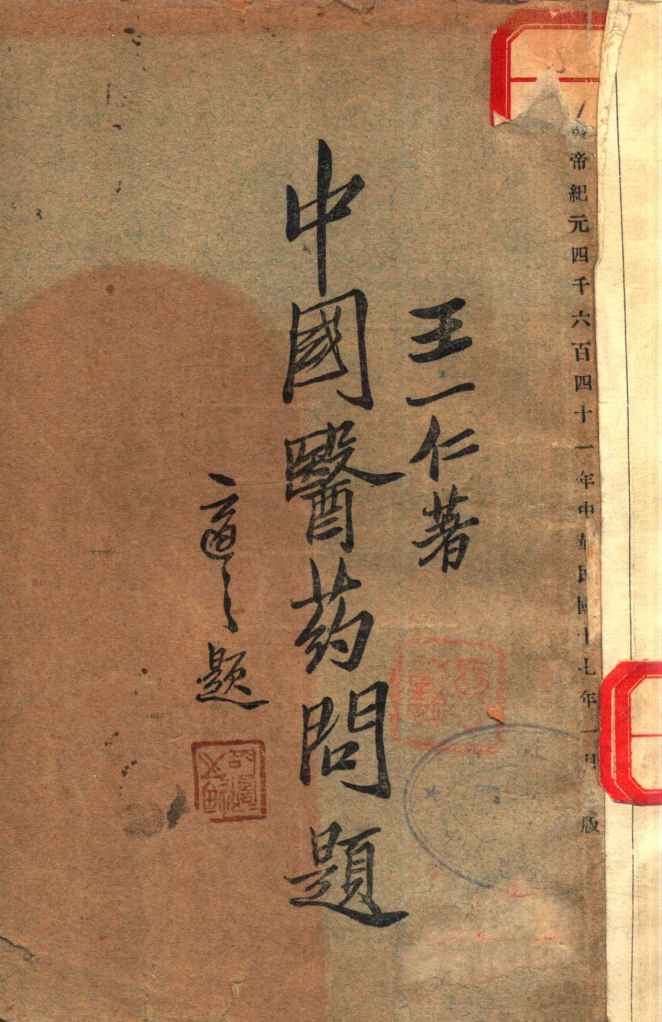 帝紀元四千六百四十一年中華民國十七年一月版
王一仁著
中國醫药問題
題